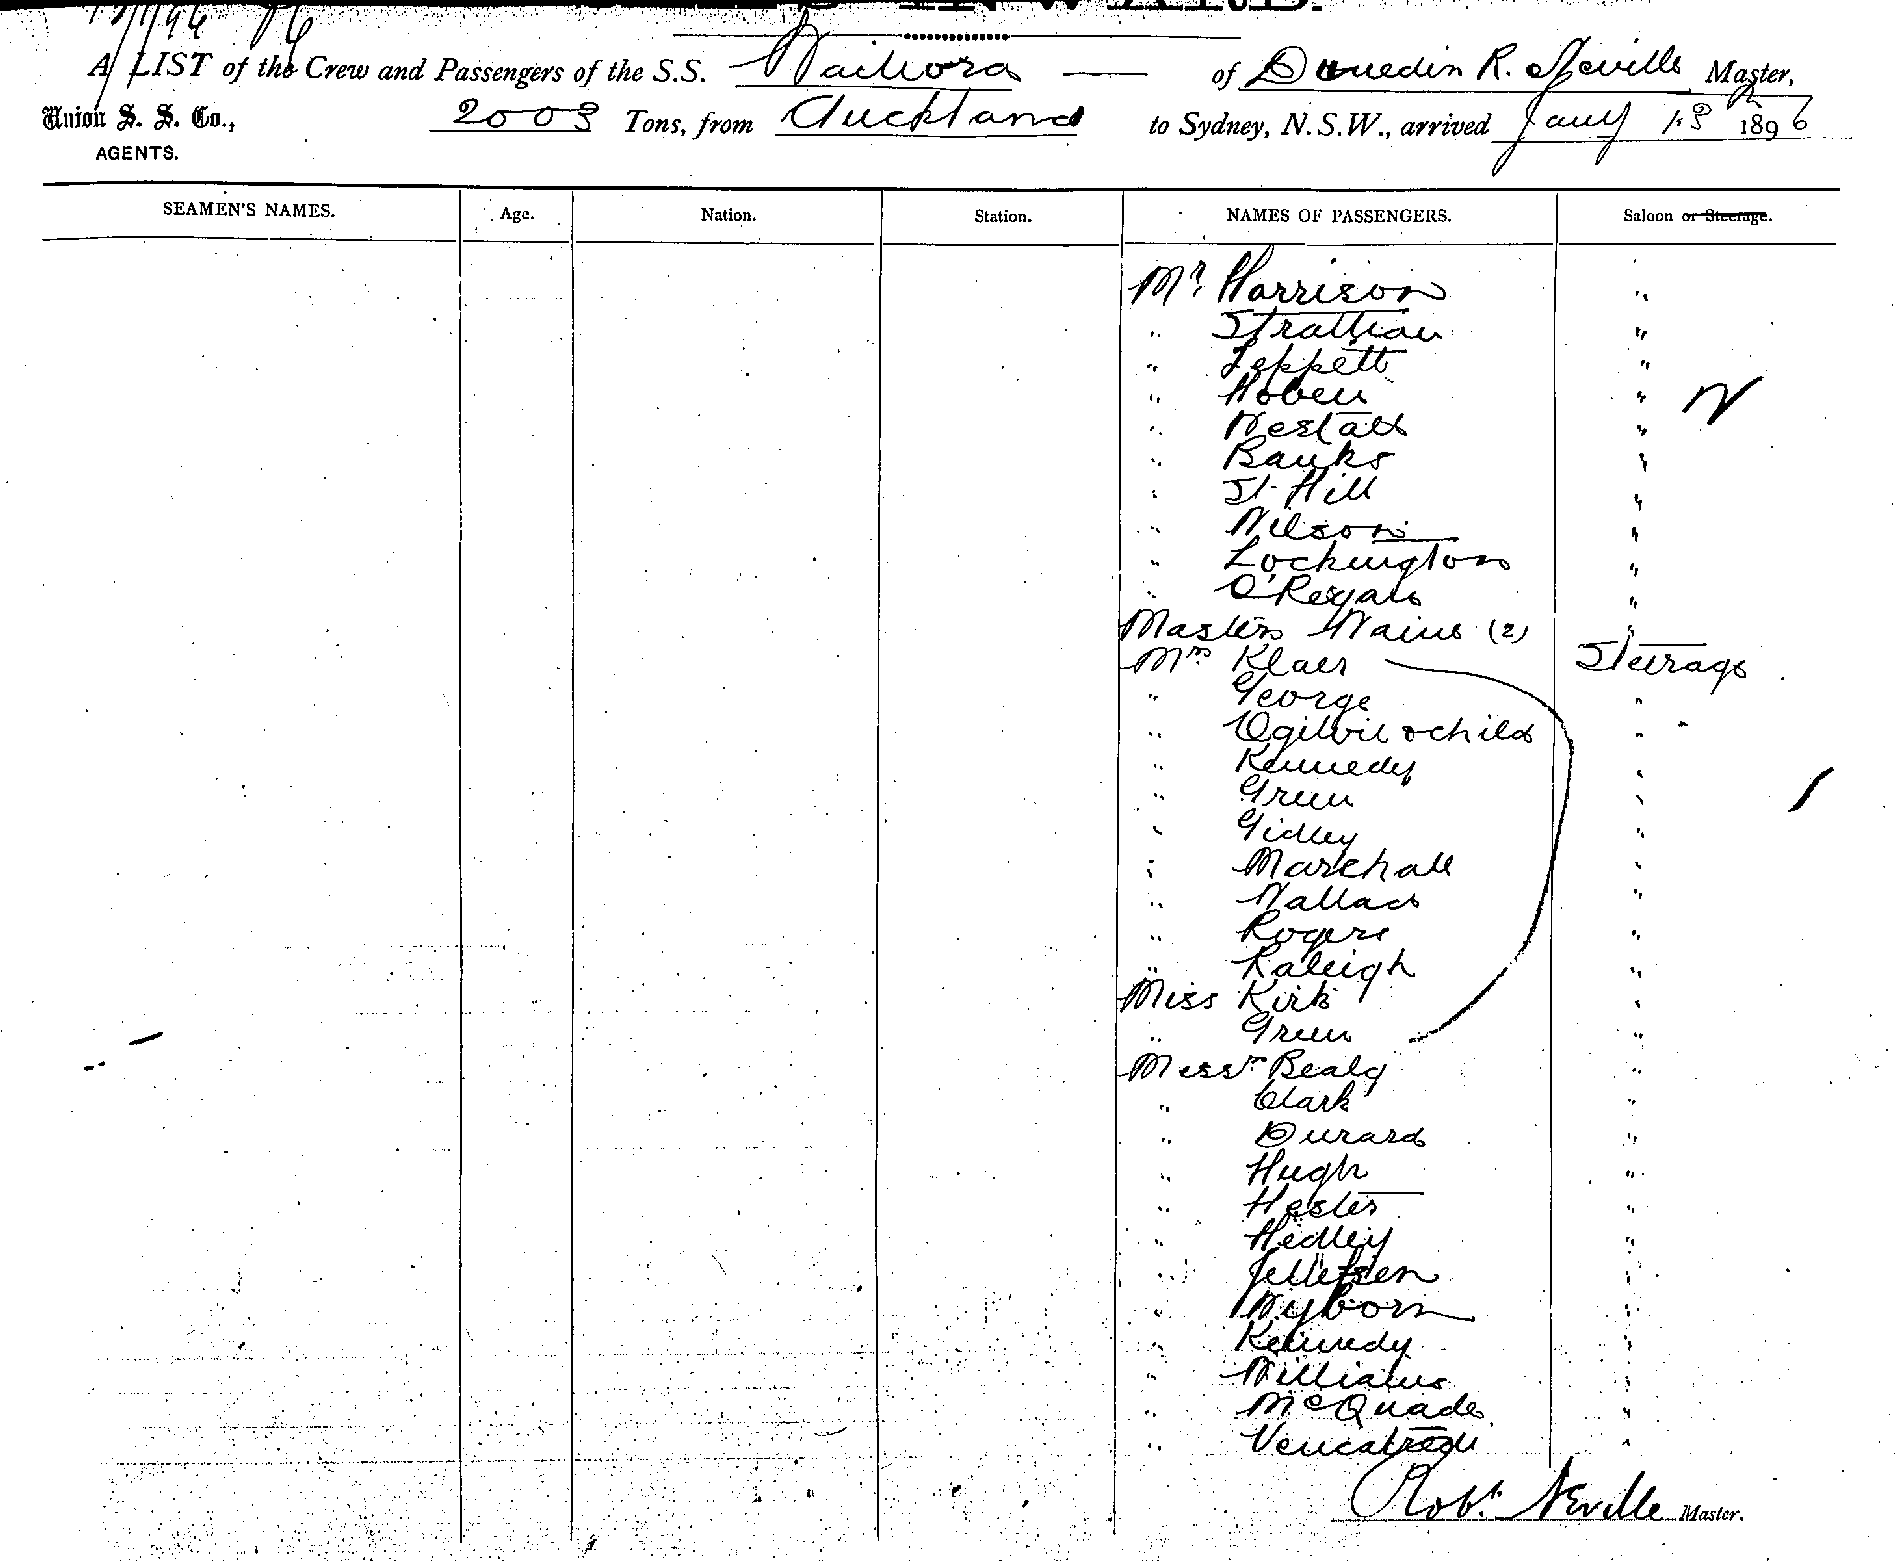 INWARD.
13/1/96
A LIST of the Crew and Passengers of the S.S. Waihora of Dunedin R. Neville Master,
Union S. S. Co., AGENTS. 2003 Tons, from Auckland to Sydney, N.S.W., arrived Jany 13th 1896
SEAMEN'S NAMES. Age. Nation. Station. NAMES OF PASSENGERS. Saloon or Steerage.
Mr Harrison "
" Strattian "
" Teppett "
" Hoben "
" Westall "
" Banks "
" St Hill "
" Wilson "
" Lockington "
" O'Regan "
Masters Wains (2) "
Mrs Klaer Steerage
" George "
" Ogilvie & child "
" Kennedy "
" Green "
" Gidley "
" Marshall "
" Wallace "
" Rogers "
" Raleigh "
Miss Kirk "
" Green "
Messrs Bealy "
" Clark "
" Durard "
" Hugh "
" Hester "
" Hedley "
" Jellefsen "
" Wyborn "
" Kennedy "
" Williams "
" McQuade "
" "
Robt. Neville Master.